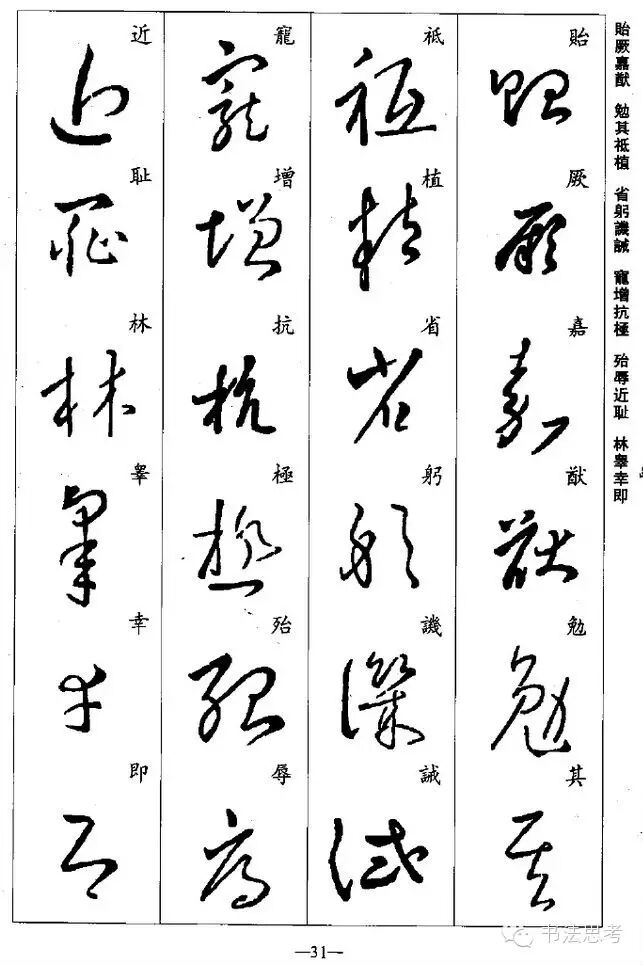 貽厥嘉猷 勉其祗植 省躬譏誡 寵增抗極 殆辱近耻 林皋幸即
貽厥嘉猷勉其
祗植省躬譏誡
寵增抗極殆辱
近耻林皋幸即
—31—
书法思考